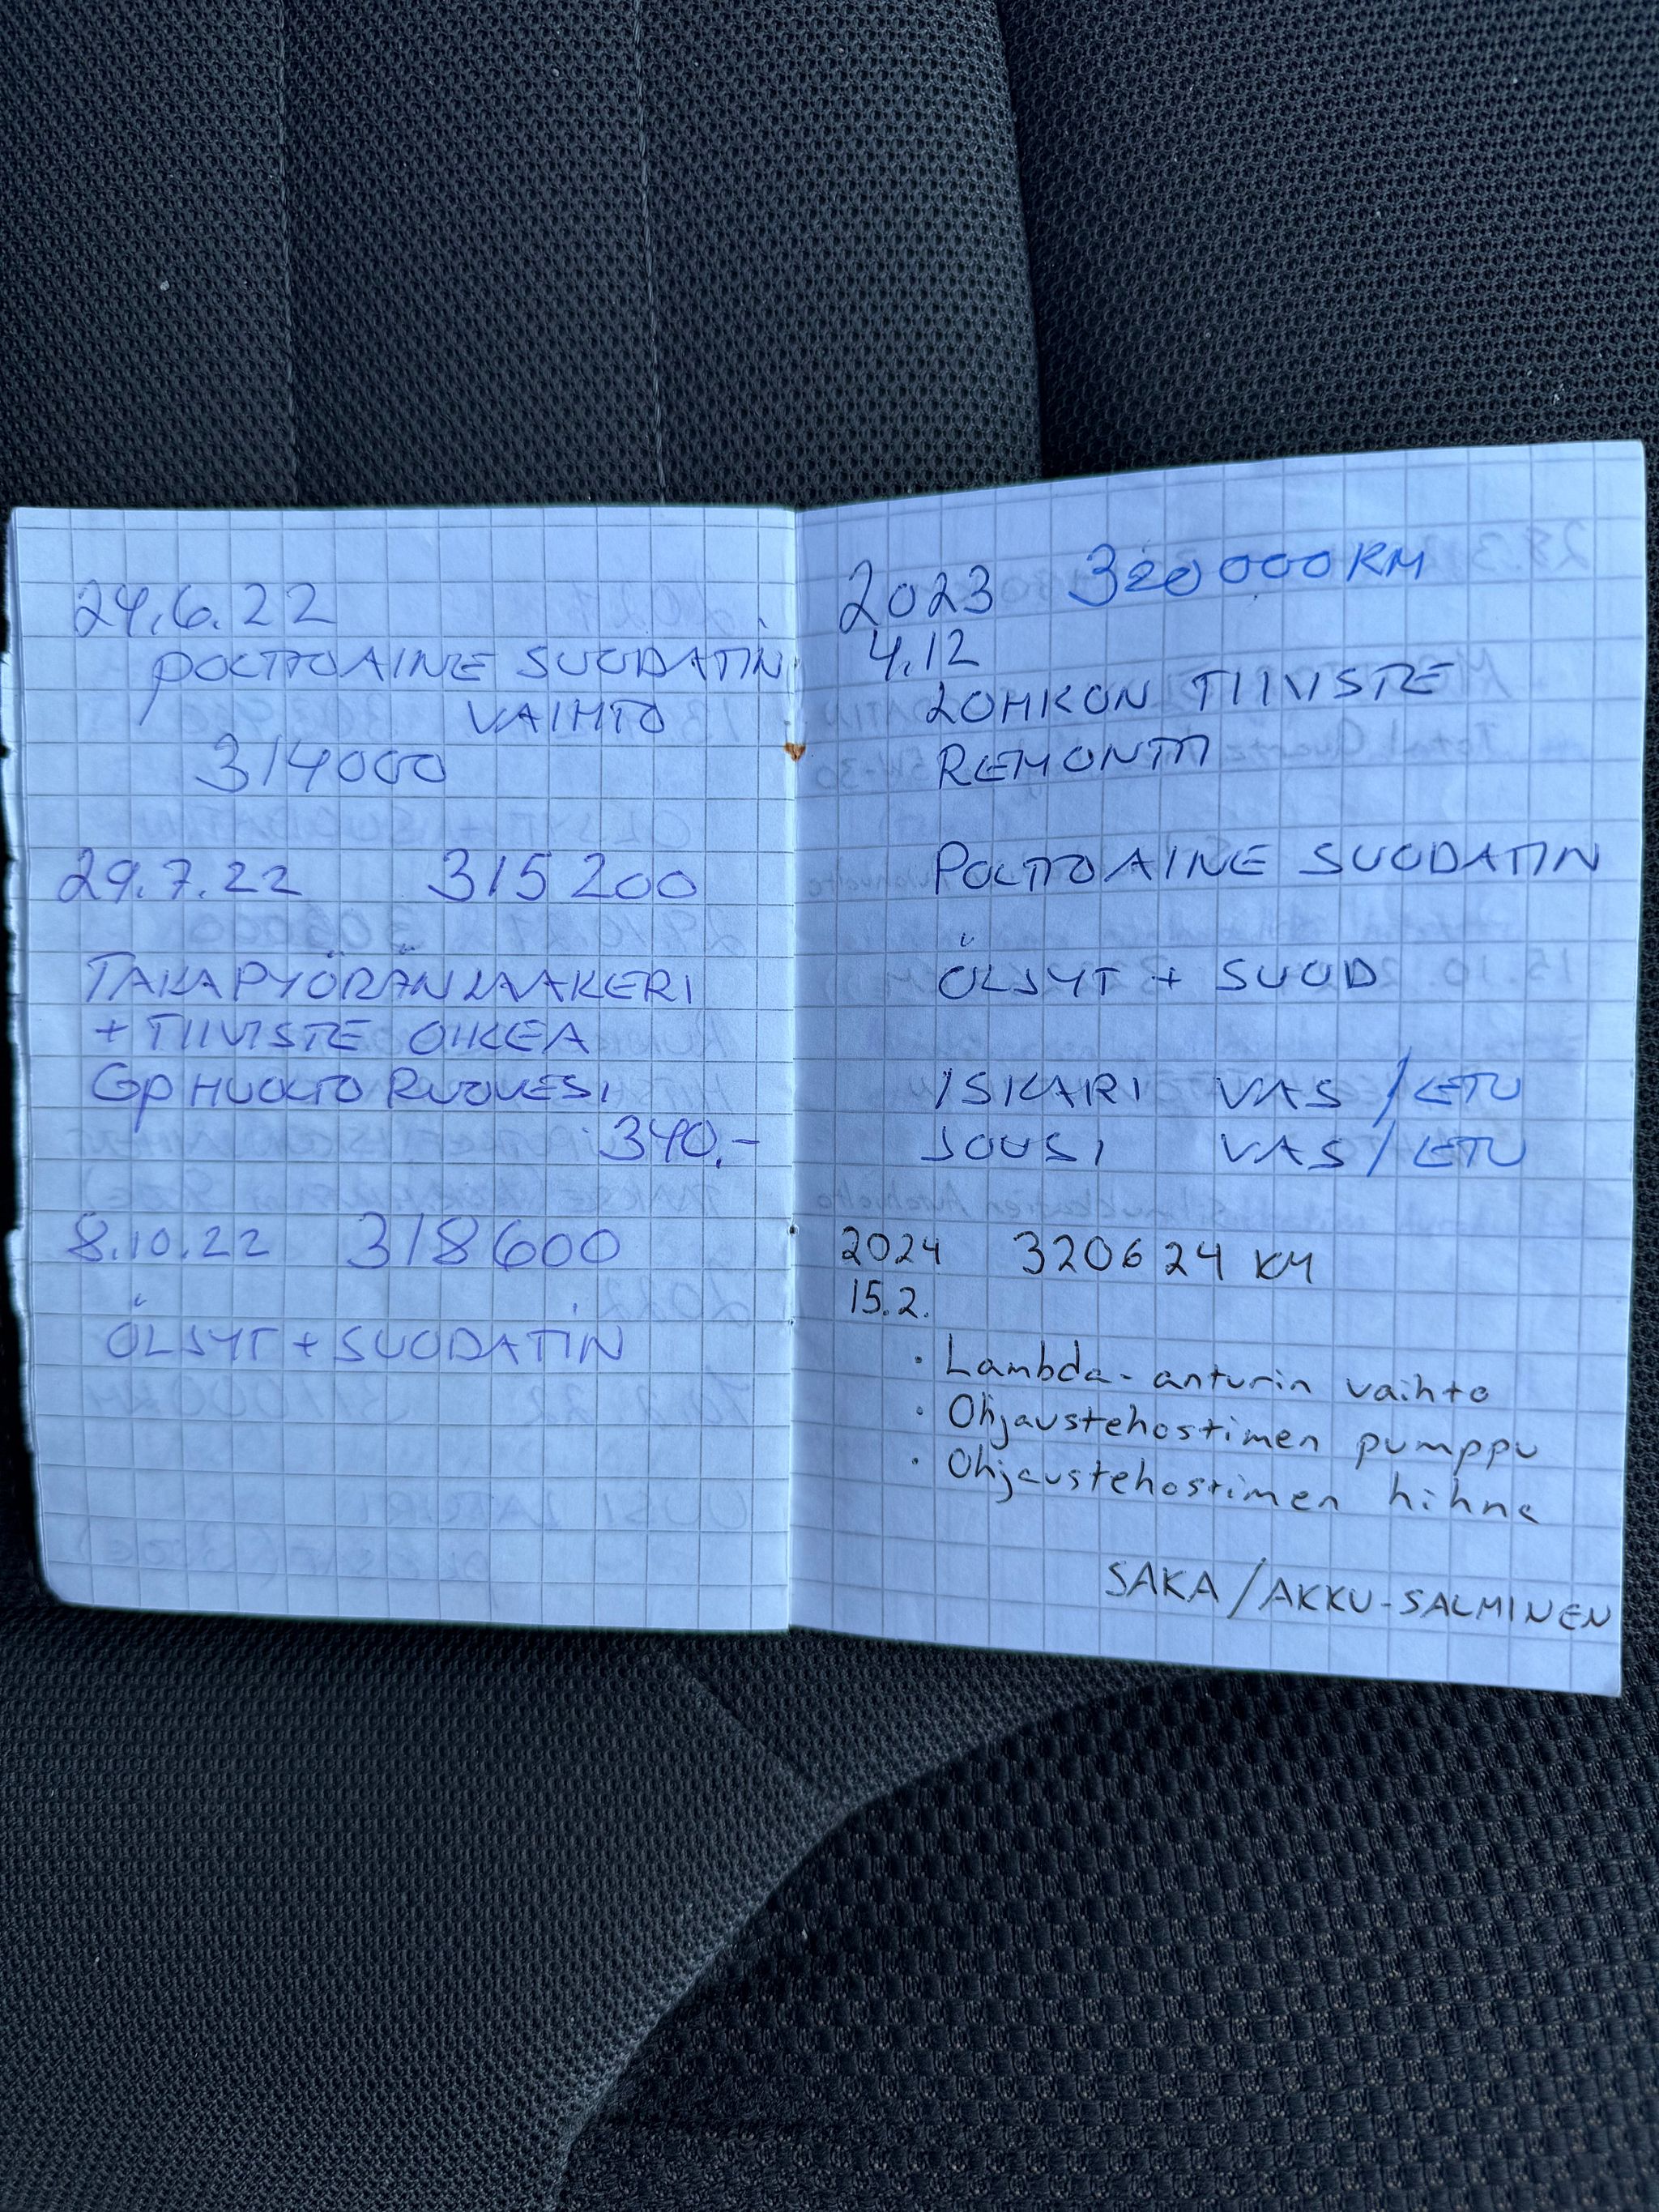 24.6.22
POLTTOAINE SUODATIN
VAIHTO
314000
29.7.22 315200
TAKAPYÖRÄN LAAKERI
+ TIIVISTE OIKEA
GP HUOLTO RUOVESI
340.-
8.10.22 318600
ÖLJYT + SUODATIN
2023 320000KM
4.12
LOHKON TIIVISTE
REMONTTI
POLTTOAINE SUODATIN
ÖLJYT + SUOD
ISKARI VAS / ETU
JOUSI VAS / ETU
2024 320624 KM
15.2.
· Lambda-anturin vaihto
· Ohjaustehostimen pumppu
· Ohjaustehostimen hihna
SAKA / AKKU-SALMINEN